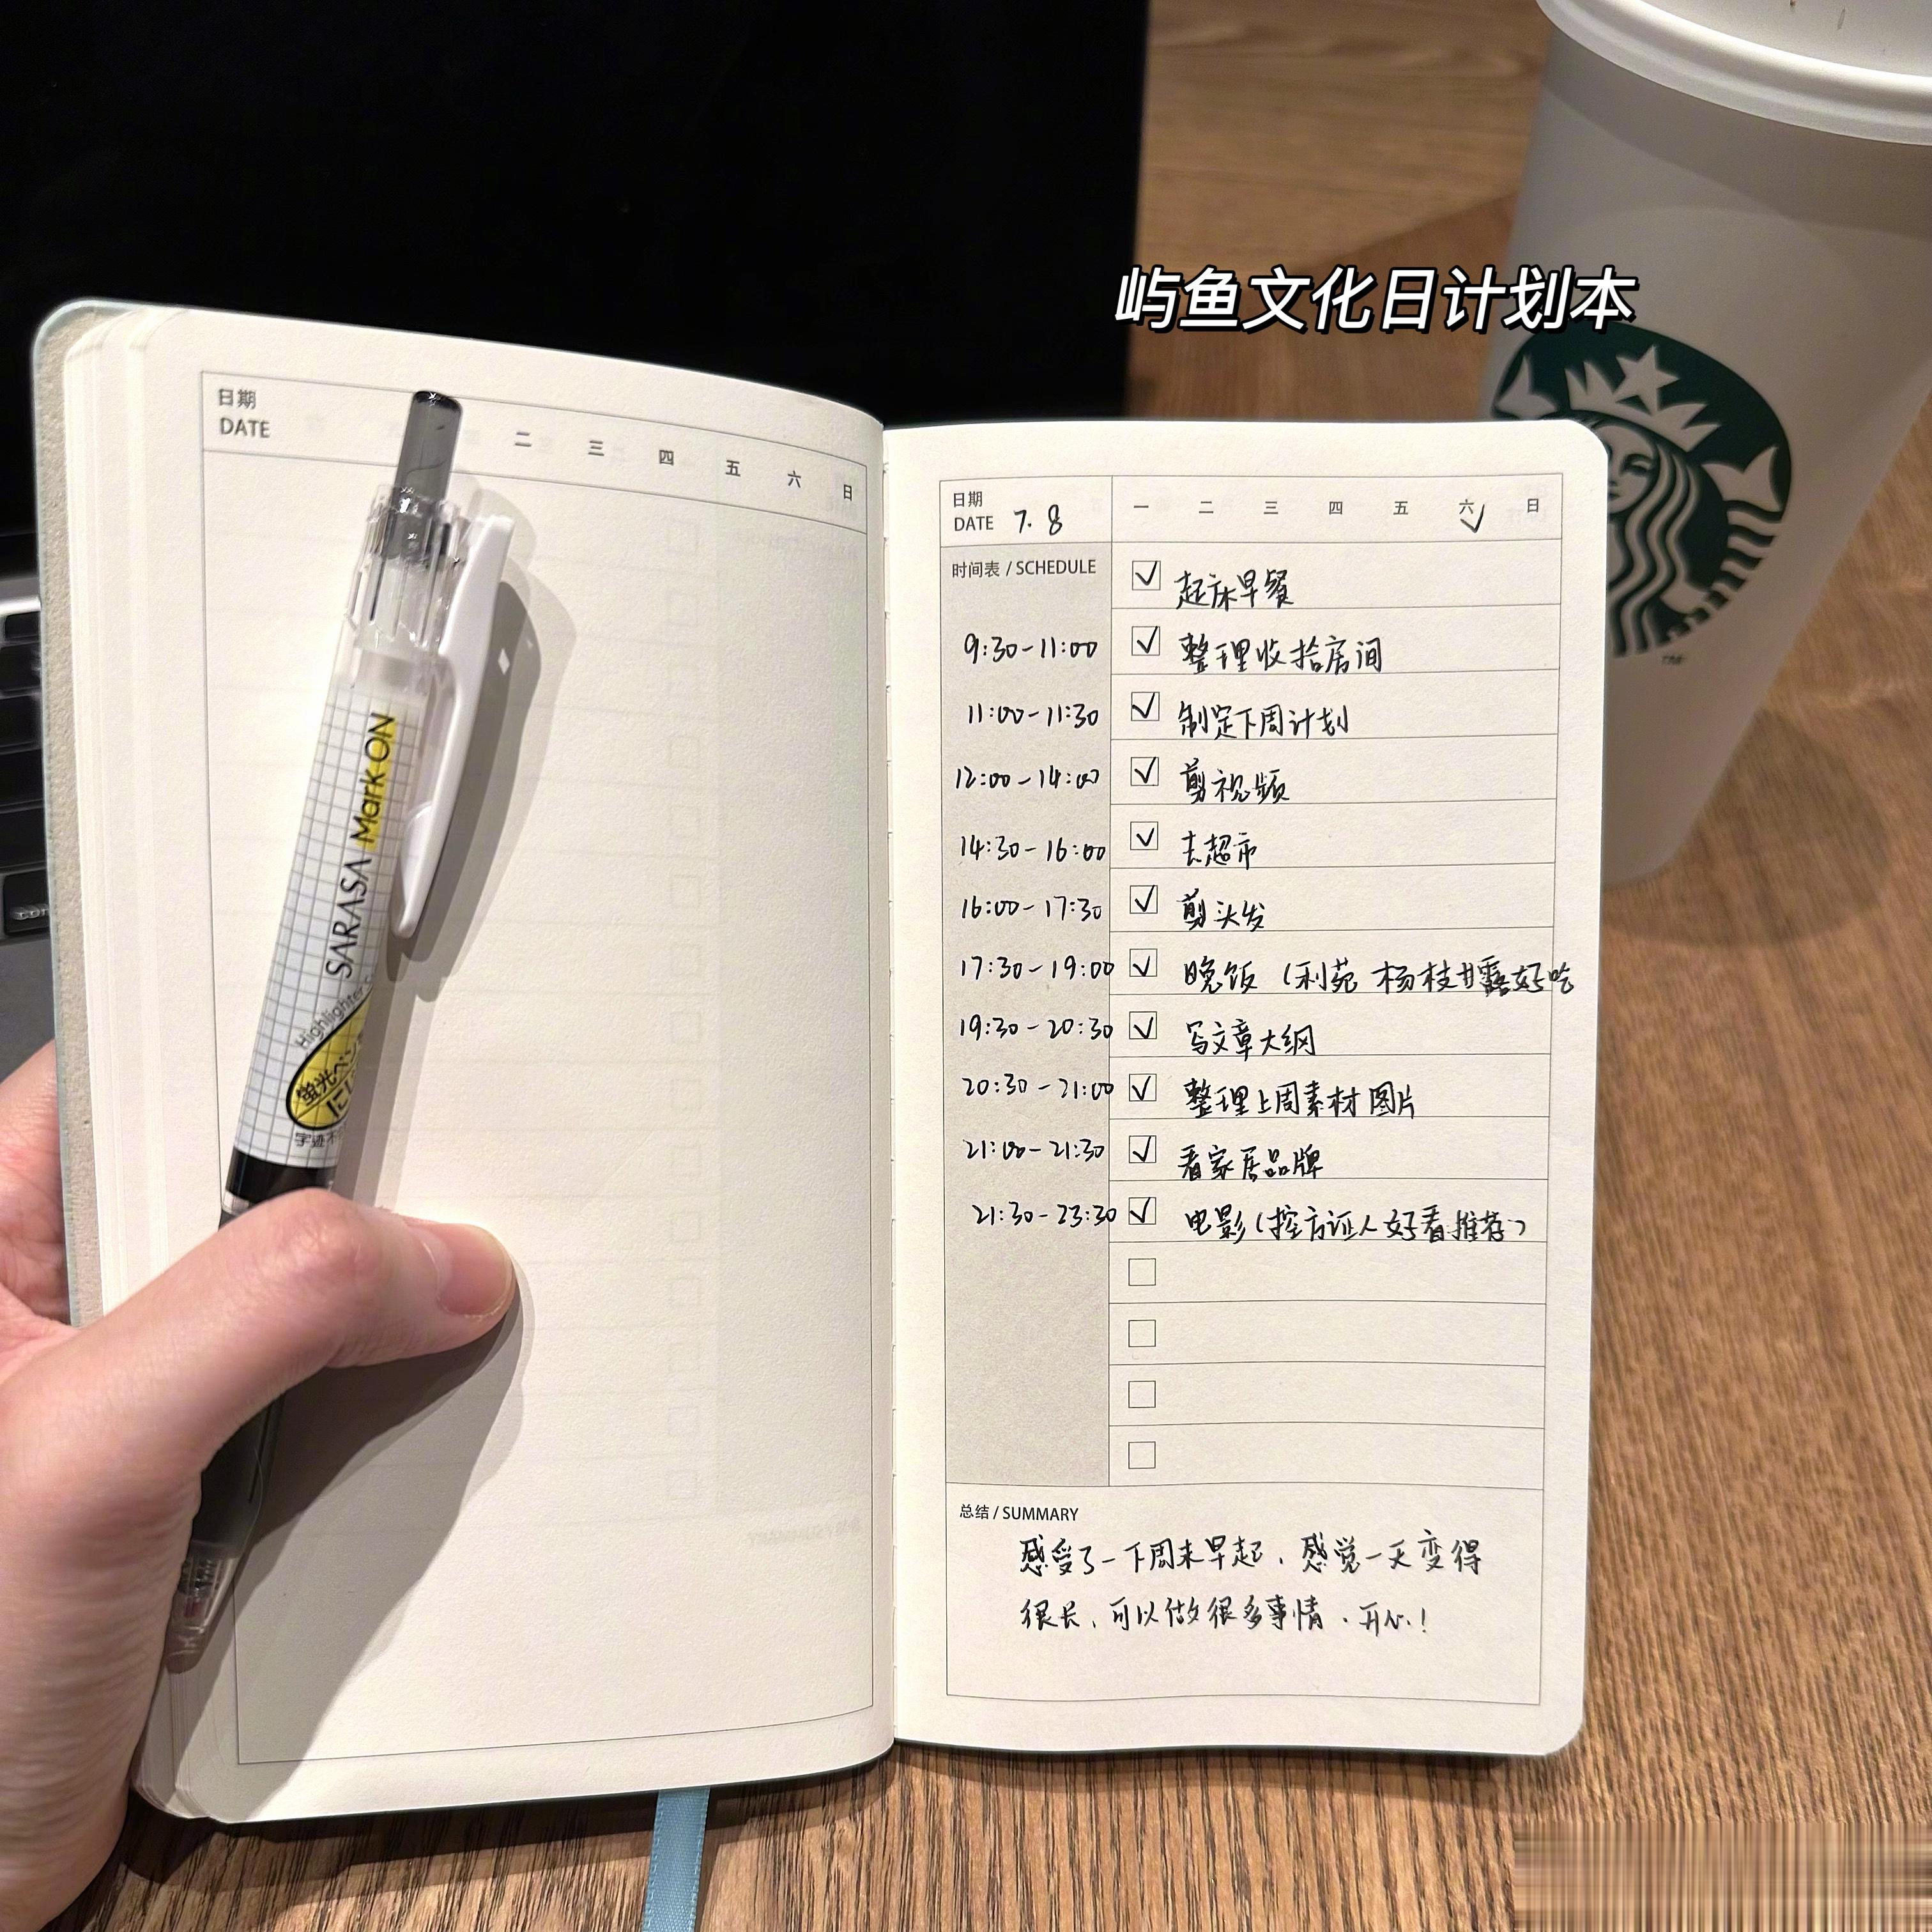 屿鱼文化日计划本
日期
DATE
二 三 四 五 六 日
SARASA Mark ON
Highlighter
蛍光ペン
日期
DATE 7.8
一 二 三 四 五 六 日
时间表 / SCHEDULE
起床早餐
9:30-11:00 整理收拾房间
11:00-11:30 制定下周计划
12:00-14:00 剪视频
14:30-16:00 去超市
16:00-17:30 剪头发
17:30-19:00 晚饭（利苑 杨枝甘露好吃
19:30-20:30 写文章大纲
20:30-21:00 整理上周素材图片
21:00-21:30 看家居品牌
21:30-23:30 电影（控方证人好看推荐）
总结 / SUMMARY
感受了一下周末早起，感觉一天变得
很长，可以做很多事情，开心！
TM